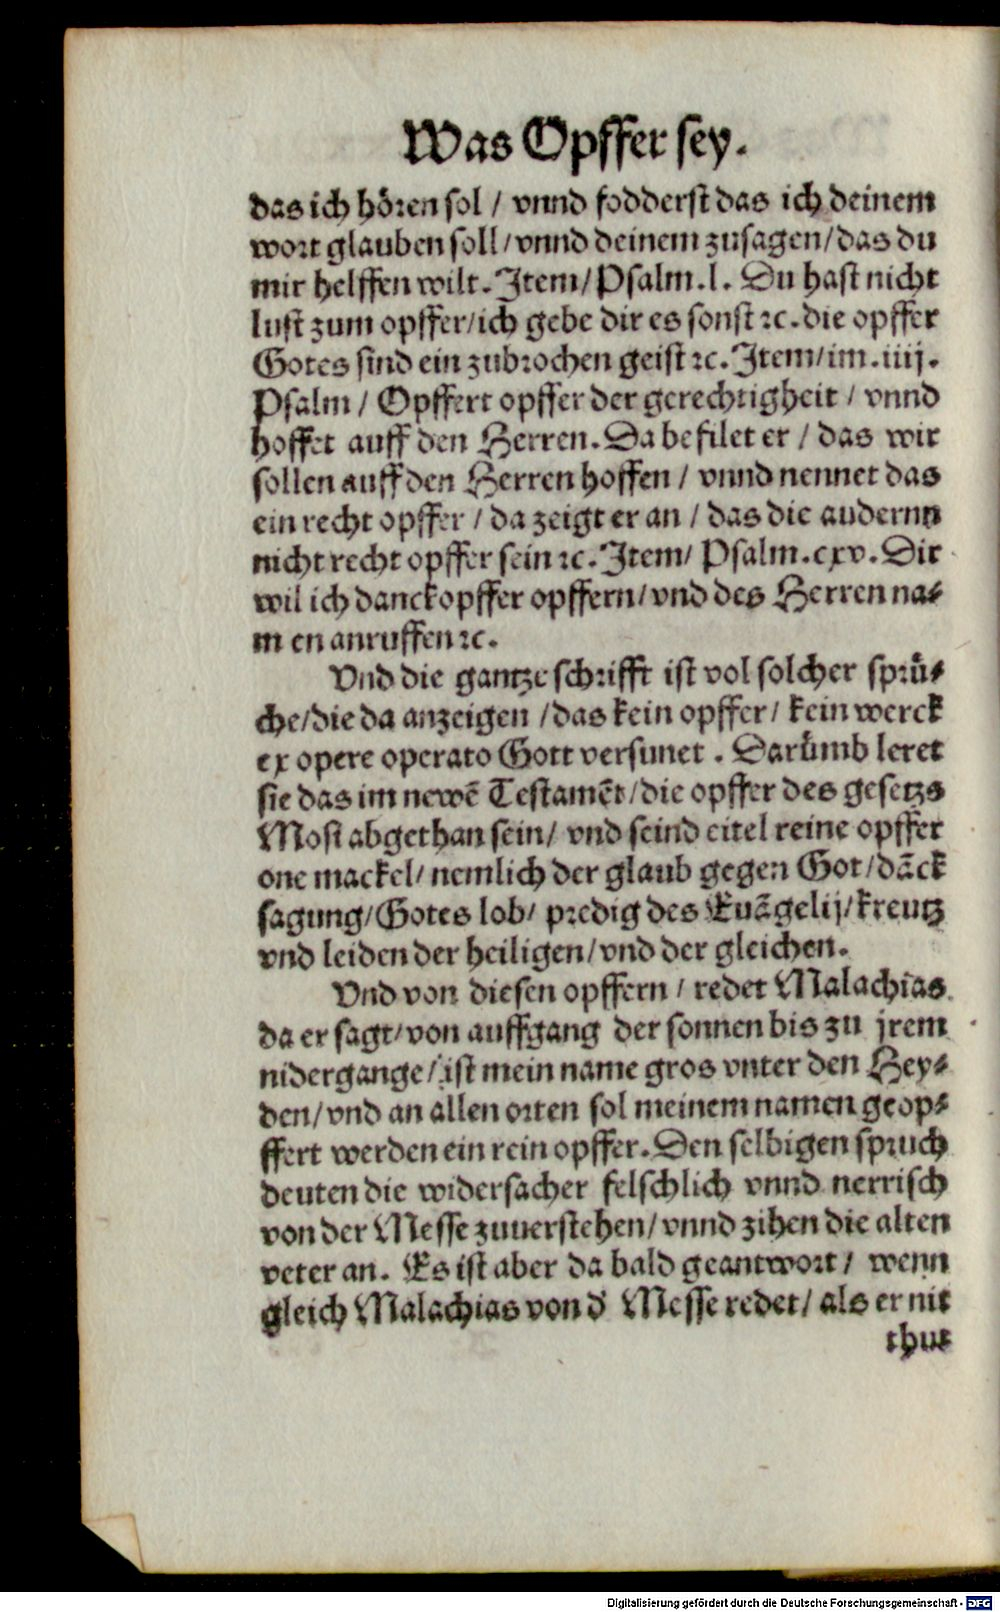 Was Opffer sey.
das ich hören sol / vnnd fodderst das ich deinem
wort glauben soll / vnnd deinem zusagen / das du
mir helffen wilt. Item / Psalm. l. Du hast nicht
lust zum opffer / ich gebe dir es sonst ꝛc. die opffer
Gotes sind ein zubrochen geist ꝛc. Item / im. iiij.
Psalm / Opffert opffer der gerechtigheit / vnnd
hoffet auff den Herren. Da befilet er / das wir
sollen auff den Herren hoffen / vnnd nennet das
ein recht opffer / da zeigt er an / das die audernn
nicht recht opffer sein ꝛc. Item / Psalm. cxv. Dir
wil ich danckopffer opffern / vnd des Herren na⸗
m en anruffen ꝛc.
Vnd die gantze schrifft ist vol solcher sprü⸗
che / die da anzeigen / das kein opffer / kein werck
ex opere operato Gott versunet . Darümb leret
sie das im newē Testamēt / die opffer des gesetzs
Mosi abgethan sein / vnd seind eitel reine opffer
one mackel / nemlich der glaub gegen Got / dāck
sagung / Gotes lob / predig des Euāgelij / kreutz
vnd leiden der heiligen / vnd der gleichen.
Vnd von diesen opffern / redet Malachias
da er sagt / von auffgang der sonnen bis zu jrem
nidergange / ist mein name gros vnter den Hey⸗
den / vnd an allen orten sol meinem namen geop⸗
ffert werden ein rein opffer. Den selbigen spruch
deuten die widersacher felschlich vnnd nerrisch
von der Messe zuuerstehen / vnnd zihen die alten
veter an. Es ist aber da bald geantwort / wenn
gleich Malachias von d' Messe redet / als er nit
thut
Digitalisierung gefördert durch die Deutsche Forschungsgemeinschaft - DFG